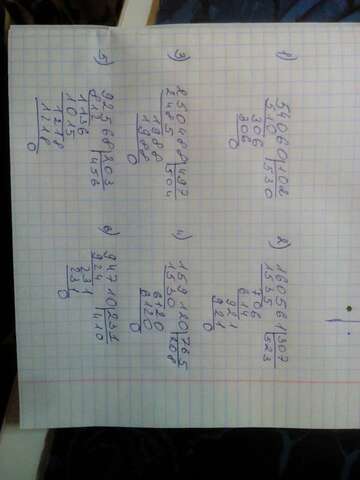 1) 54060|102
510 530
306
306
0
2) 160561|307
1535 523
706
614
921
921
0
3) 250488|497
2485 504
1988
1988
0
4) 159120|765
1530 208
6120
6120
0
5) 92568|203
812 456
1136
1015
1218
1218
0
6) 94710|231
924 410
231
231
0